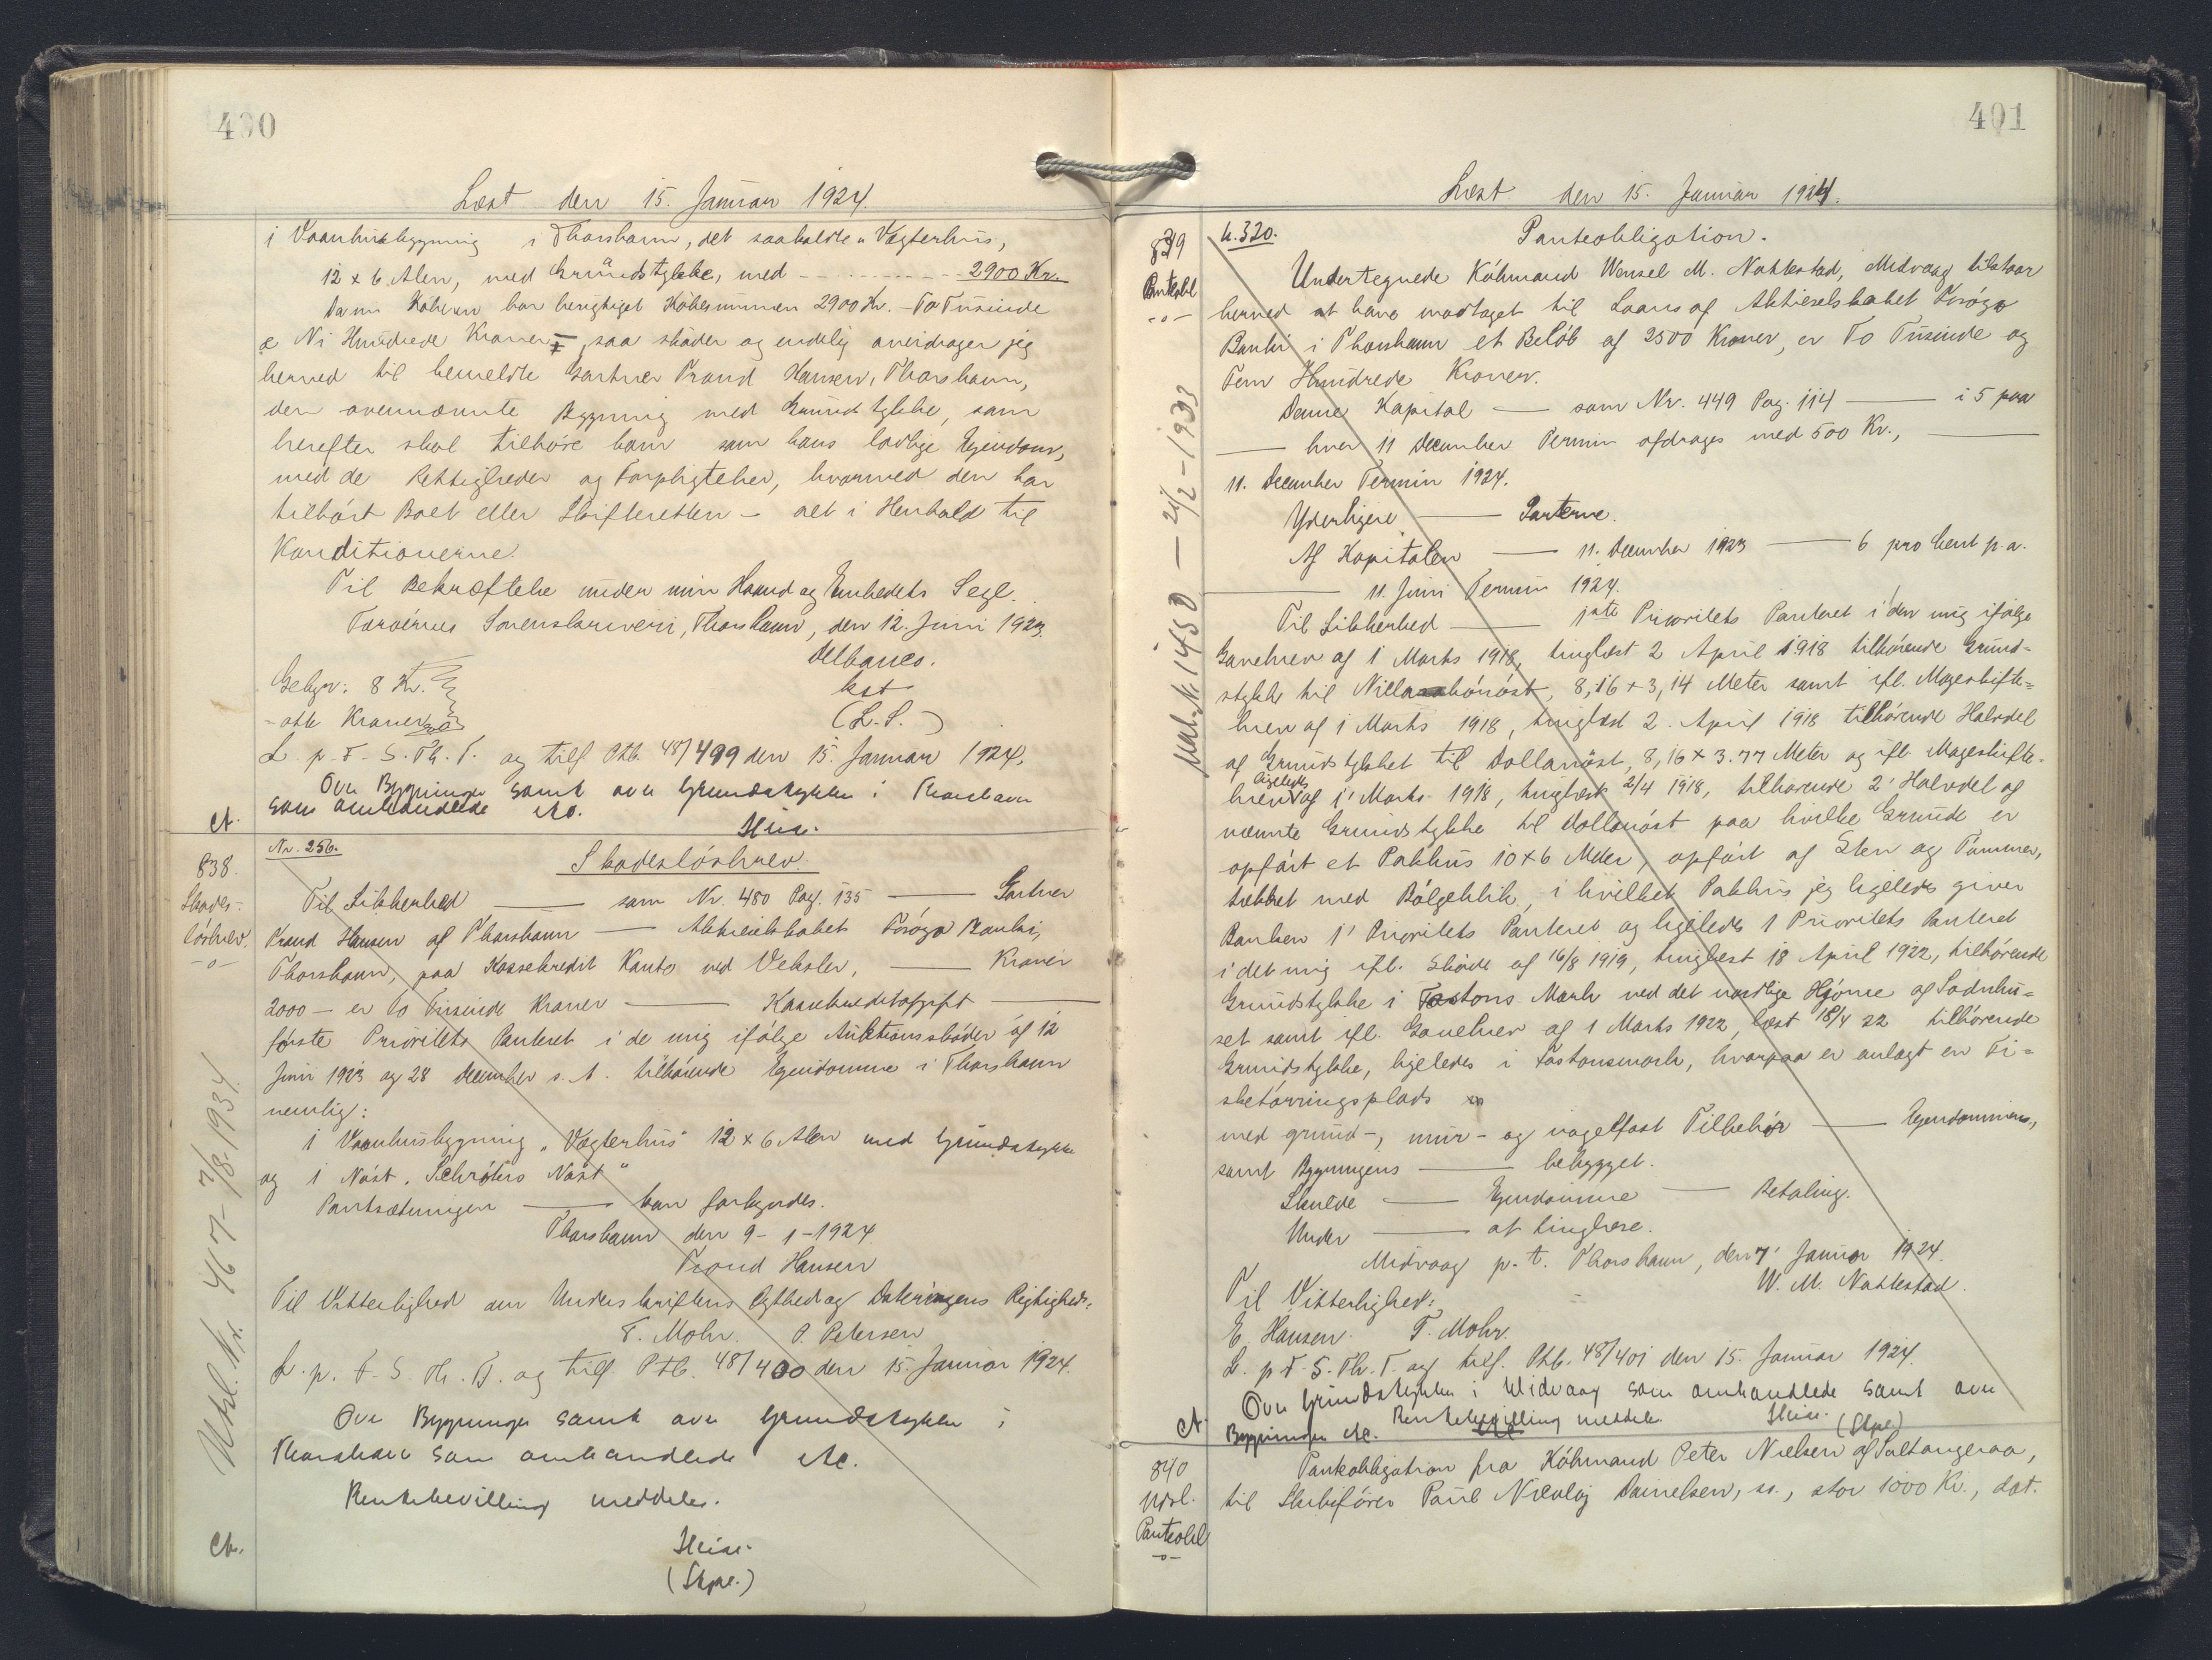 400
Læst den 15. Januar 1924.
1 Vaanhusbygning i Thorshavn, det saakaldte "Vægterhus,
12 x 6 Alen, med Grundstykke, med - - - - 2900 Kr.
Da nu Køberen har berigtiget Købesummen 2900 Kr. - To Tusinde
& Ni Hundrede Kroner - saa skøder og endelig overdrager jeg
herved til bemeldte Gartner Trond Hansen, Thorshavn,
den ovennævnte Bygning med Grundstykke, som
herefter skal tilhøre ham som hans lovlige Ejendom,
med de Rettigheder og Forpligtelser, hvormed den har
tilhørt Boet eller Skifteretten - alt i Henhold til
Konditionerne.
Til Bekræftelse under min Haand og Embedets Segl.
Færøernes Sorenskriveri, Thorshavn, den 12. Juni 1923.
Delbanco.
kst
Gebyr: 8 Kr.
- otte Kroner
(L.S.)
L. p. F. S. Th. T. og tilf. Ptb. 48/499 den 15. Januar 1924.
Ove Bygningen samt ove Grundstykke i Thorshavn
som omhandlede &c.
Heise.
ct.
838.
Skades-
løsbrev.
-o-
Nr. 256.
Skadesløsbrev.
Til Sikkerhed — som Nr. 480 Pag. 135 — Gartner
Trond Hansen af Thorshavn — Aktieselskabet Føroya Banki,
Thorshavn, paa Kassekredit Konto ved Veksler, — Kroner
2000 - er To Tusinde Kroner — Kassekreditafgift —
første Prioritets Panteret i de mig ifølge Auktionsskøder af 12
Juni 1923 og 28 December s. A. tilhørende Ejendomme i Thorshavn
nemlig:
1 Vaanhusbygning "Vægterhus" 12 x 6 Alen med Grundstykke
og 1 Nøst "Schrøters Nøst"
Pantsætningen — kan forbyndes.
Thorshavn den 9 - 1 - 1924
Trond Hansen
Til Vitterlighed om Underskriftens Ægthed og Dateringens Rigtighed:
T. Mohr. P. Petersen
L. p. F. S. Th. T. og tilf. Ptb. 48/400 den 15. Januar 1924.
Ove Bygningen samt ove Grundstykke i
Thorshavn som omhandlede &c.
Rentebevilling meddeles.
ct.
Heise.
(Skpr.)
Udsl. Nr. 467 - 7/8 1934.
401
Læst den 15. Januar 1924.
839
Panteobl
-o-
U. 320.
Panteobligation.
Undertegnede Købmand Wensel M. Nattestad, Midvaag tilstaar
herved at have modtaget til Laans af Aktieselskabet Føroya
Banki i Thorshavn et Beløb af 2500 Kroner, er To Tusinde og
Fem Hundrede Kroner.
Denne Kapital — som Nr. 449 Pag. 114 — i 5 paa
— hver 11 December Termin afdrages med 500 Kr., —
11. December Termin 1924.
Yderligere — Parterne.
Af Kapitalen — 11. December 1923 — 6 pro Cent p.a.
— 11. Juni Termin 1924.
Til Sikkerhed — 1ste Prioritets Panteret i den mig ifølge
Gavebrev af 1 Marts 1918, tinglæst 2 April 1918 tilhørende Grund-
stykke til 8,16 x 3,14 Meter samt ifl. Mageskifte=
brev af 1 Marts 1918, tinglæst 2. April 1918 tilhørende Halvdel
af Grundstykket til Dollanøst, 8,16 x 3.77 Meter og ifl. Mageskifte-
brev ligeledes af 1' Marts 1918, tinglæst 2/4 1918, tilhørende 2' Halvdel af
nævnte Grundstykke til Dollanøst paa hvilke Grunde er
opført et Pakhus 10 x 6 Meter, opført af Sten og Tømmer,
tækket med Bølgeblik, i hvilket Pakhus jeg ligeledes giver
Banken 1' Prioritets Panteret og ligeledes 1 Prioritets Panteret
i det mig ifl. Skøde af 16/8 1919, tinglæst 18 April 1922, tilhørende
Grundstykke i Tostons Mark ved det nordlige Hjørne af Sodnhu=
set samt ifl. Gavebrev af 1 Marts 1922, læst 18/4 22 tilhørende
Grundstykke, ligeledes i Tostonsmark, hvorpaa er anlagt en Fi=
sketørringsplads
med grund-, mur- og nagelfast Tilbehør — Ejendommens,
samt Bygningens — bebygget.
Skulde — Ejendomme — Betaling.
Under — at tinglæse.
Midvaag p.t. Thorshavn, den 7' Januar 1924.
W. M. Nattestad.
Til Vitterlighed:
E. Hansen. T. Mohr.
L. p. F. S. Th. T. og tilf. Ptb. 48/401 den 15. Januar 1924.
Ove Grundstykke i Midvaag som omhandlede samt ove
Bygningen &c. Rentebevilling meddeles. Heise. (Skpr.)
ct
Udsl. Nr. 1450 — 21/2 - 1933
840
Udsl.
Panteobl
-o-
Panteobligation fra Købmand Peter Nielsen af Saltangeraa,
til Skibsfører Poul Nicolaj Danielsen, ss., stor 1000 Kr., dat.